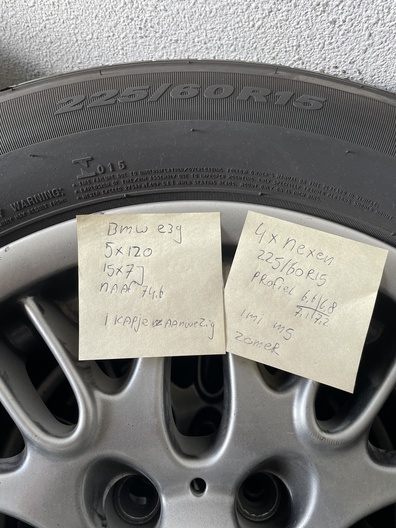 225/60R15
I 016
WARNING:
Bmw e39
5x120
15x7J
NAAF 74.6
1 KAPJe is AANwezig
4x nexen
225/60R15
PROFIEL 6.6/6.8
7.1/7.2
1m1 m5
zomer